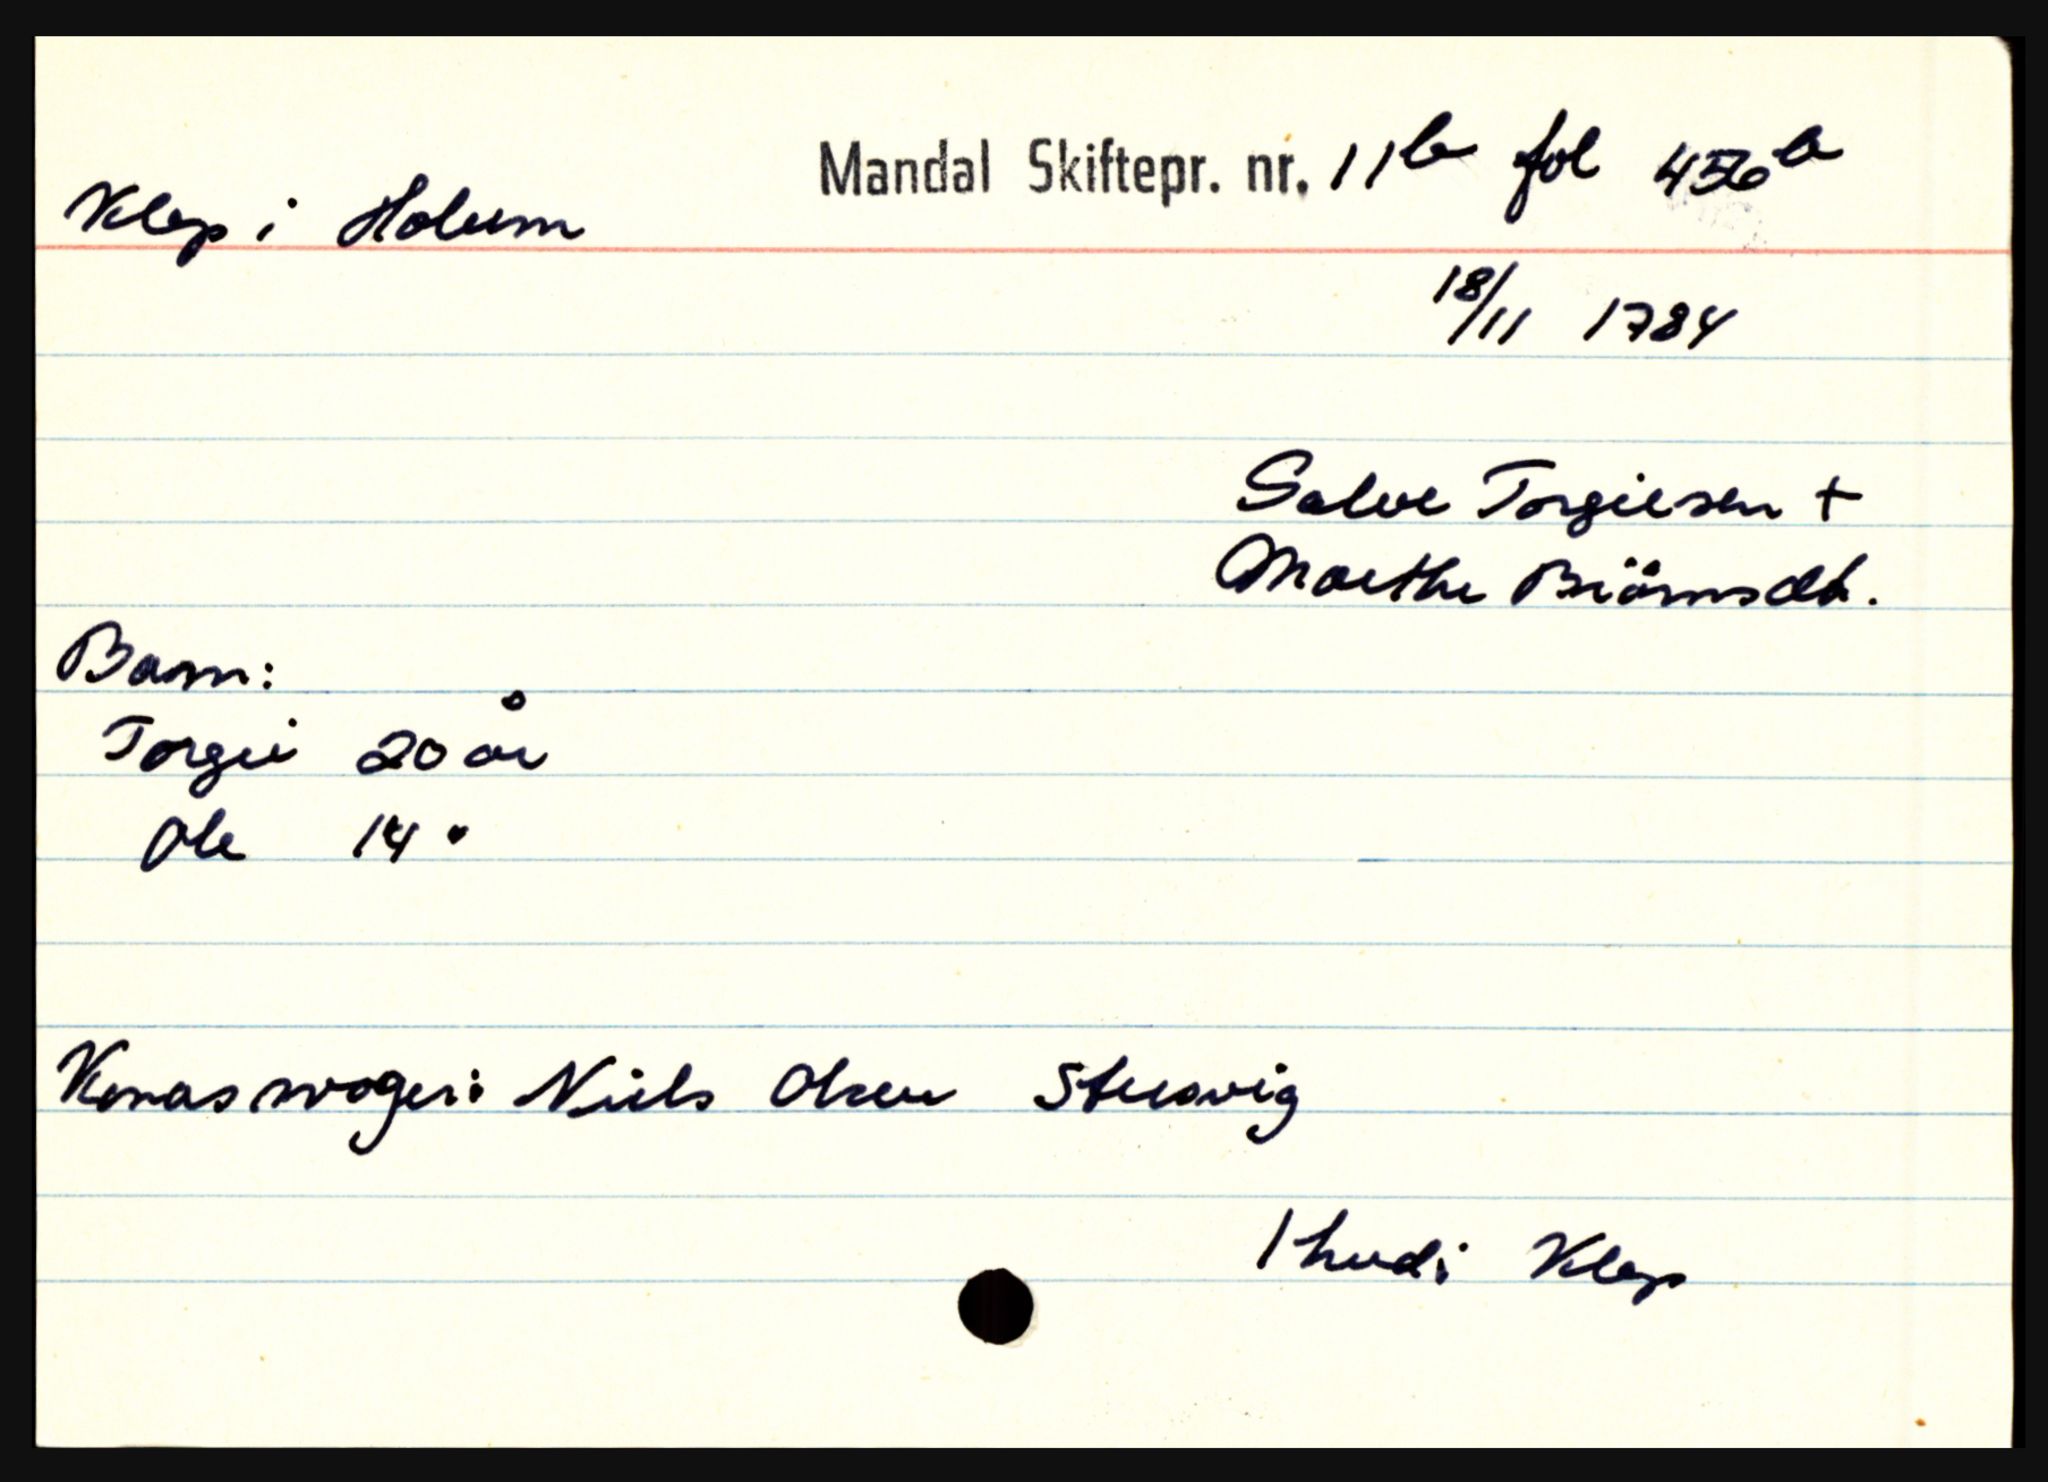 Mandal Skiftepr. nr. 11b fol 456b
Klep i Holum
18/11 1784
Salve Torgiesen +
Marthe Biörnsdt.
Barn:
Torgie 20 år
Ole 14 "
Konas svoger: Niels Olsen Stusvig
1 hud i Klep